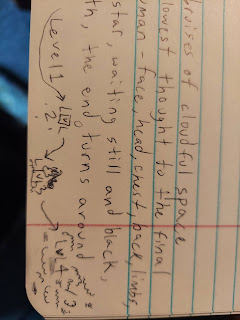 bruises of cloudful space
lowest thought to the final
uman - face, head, chest, back, limbs,
star, waiting still and black,
th, the end turns around
Level 1